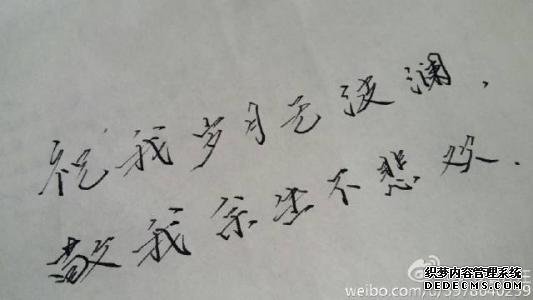 祝我岁月无波澜，
敬我余生不悲欢．
织梦内容管理系统
DEDECMS.COM